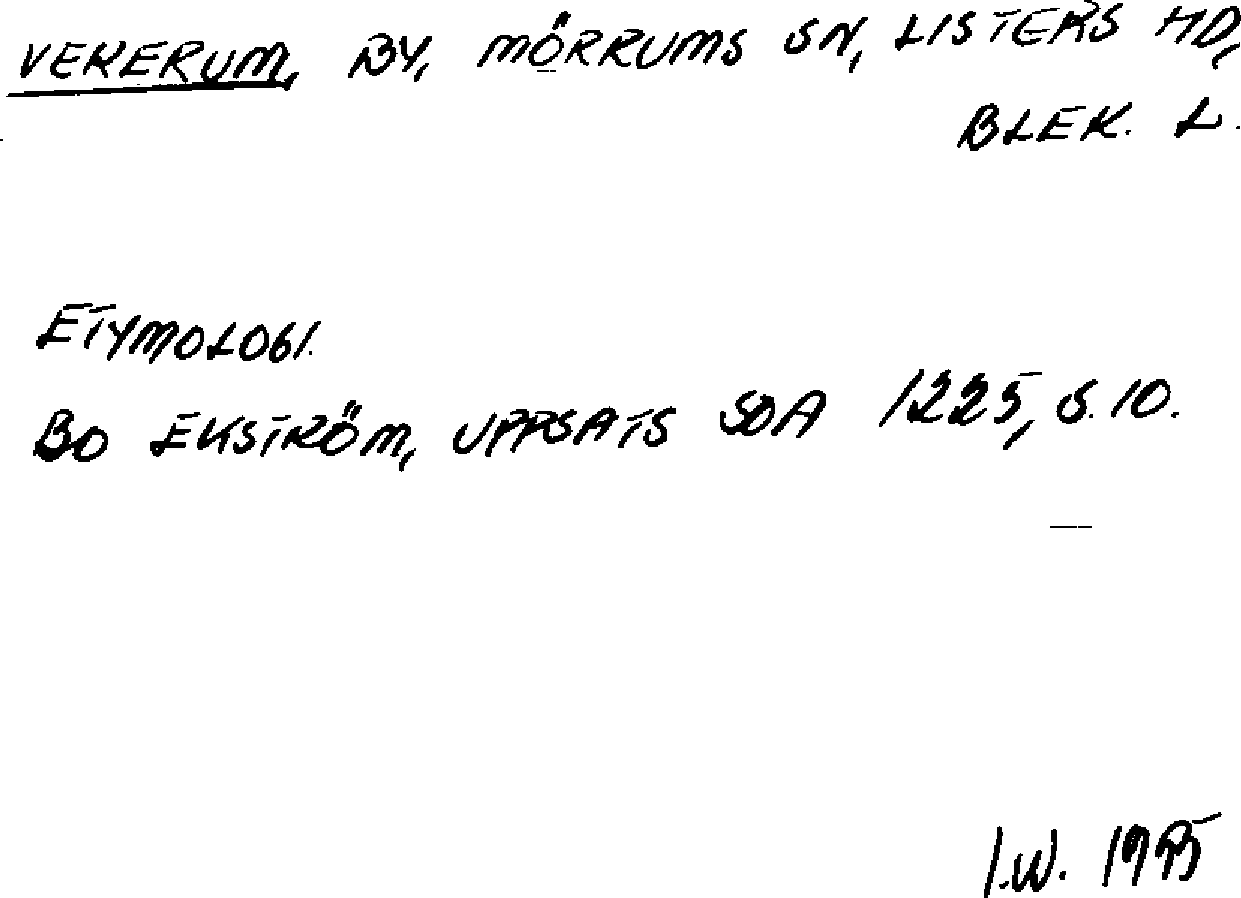 VEKERUM, BY, MÖRRUMS SN, LISTERS HD,
BLEK. L.
ETYMOLOGI.
BO EKSTRÖM, UPPSATS SOA 1225, S. 10.
I.W. 1975